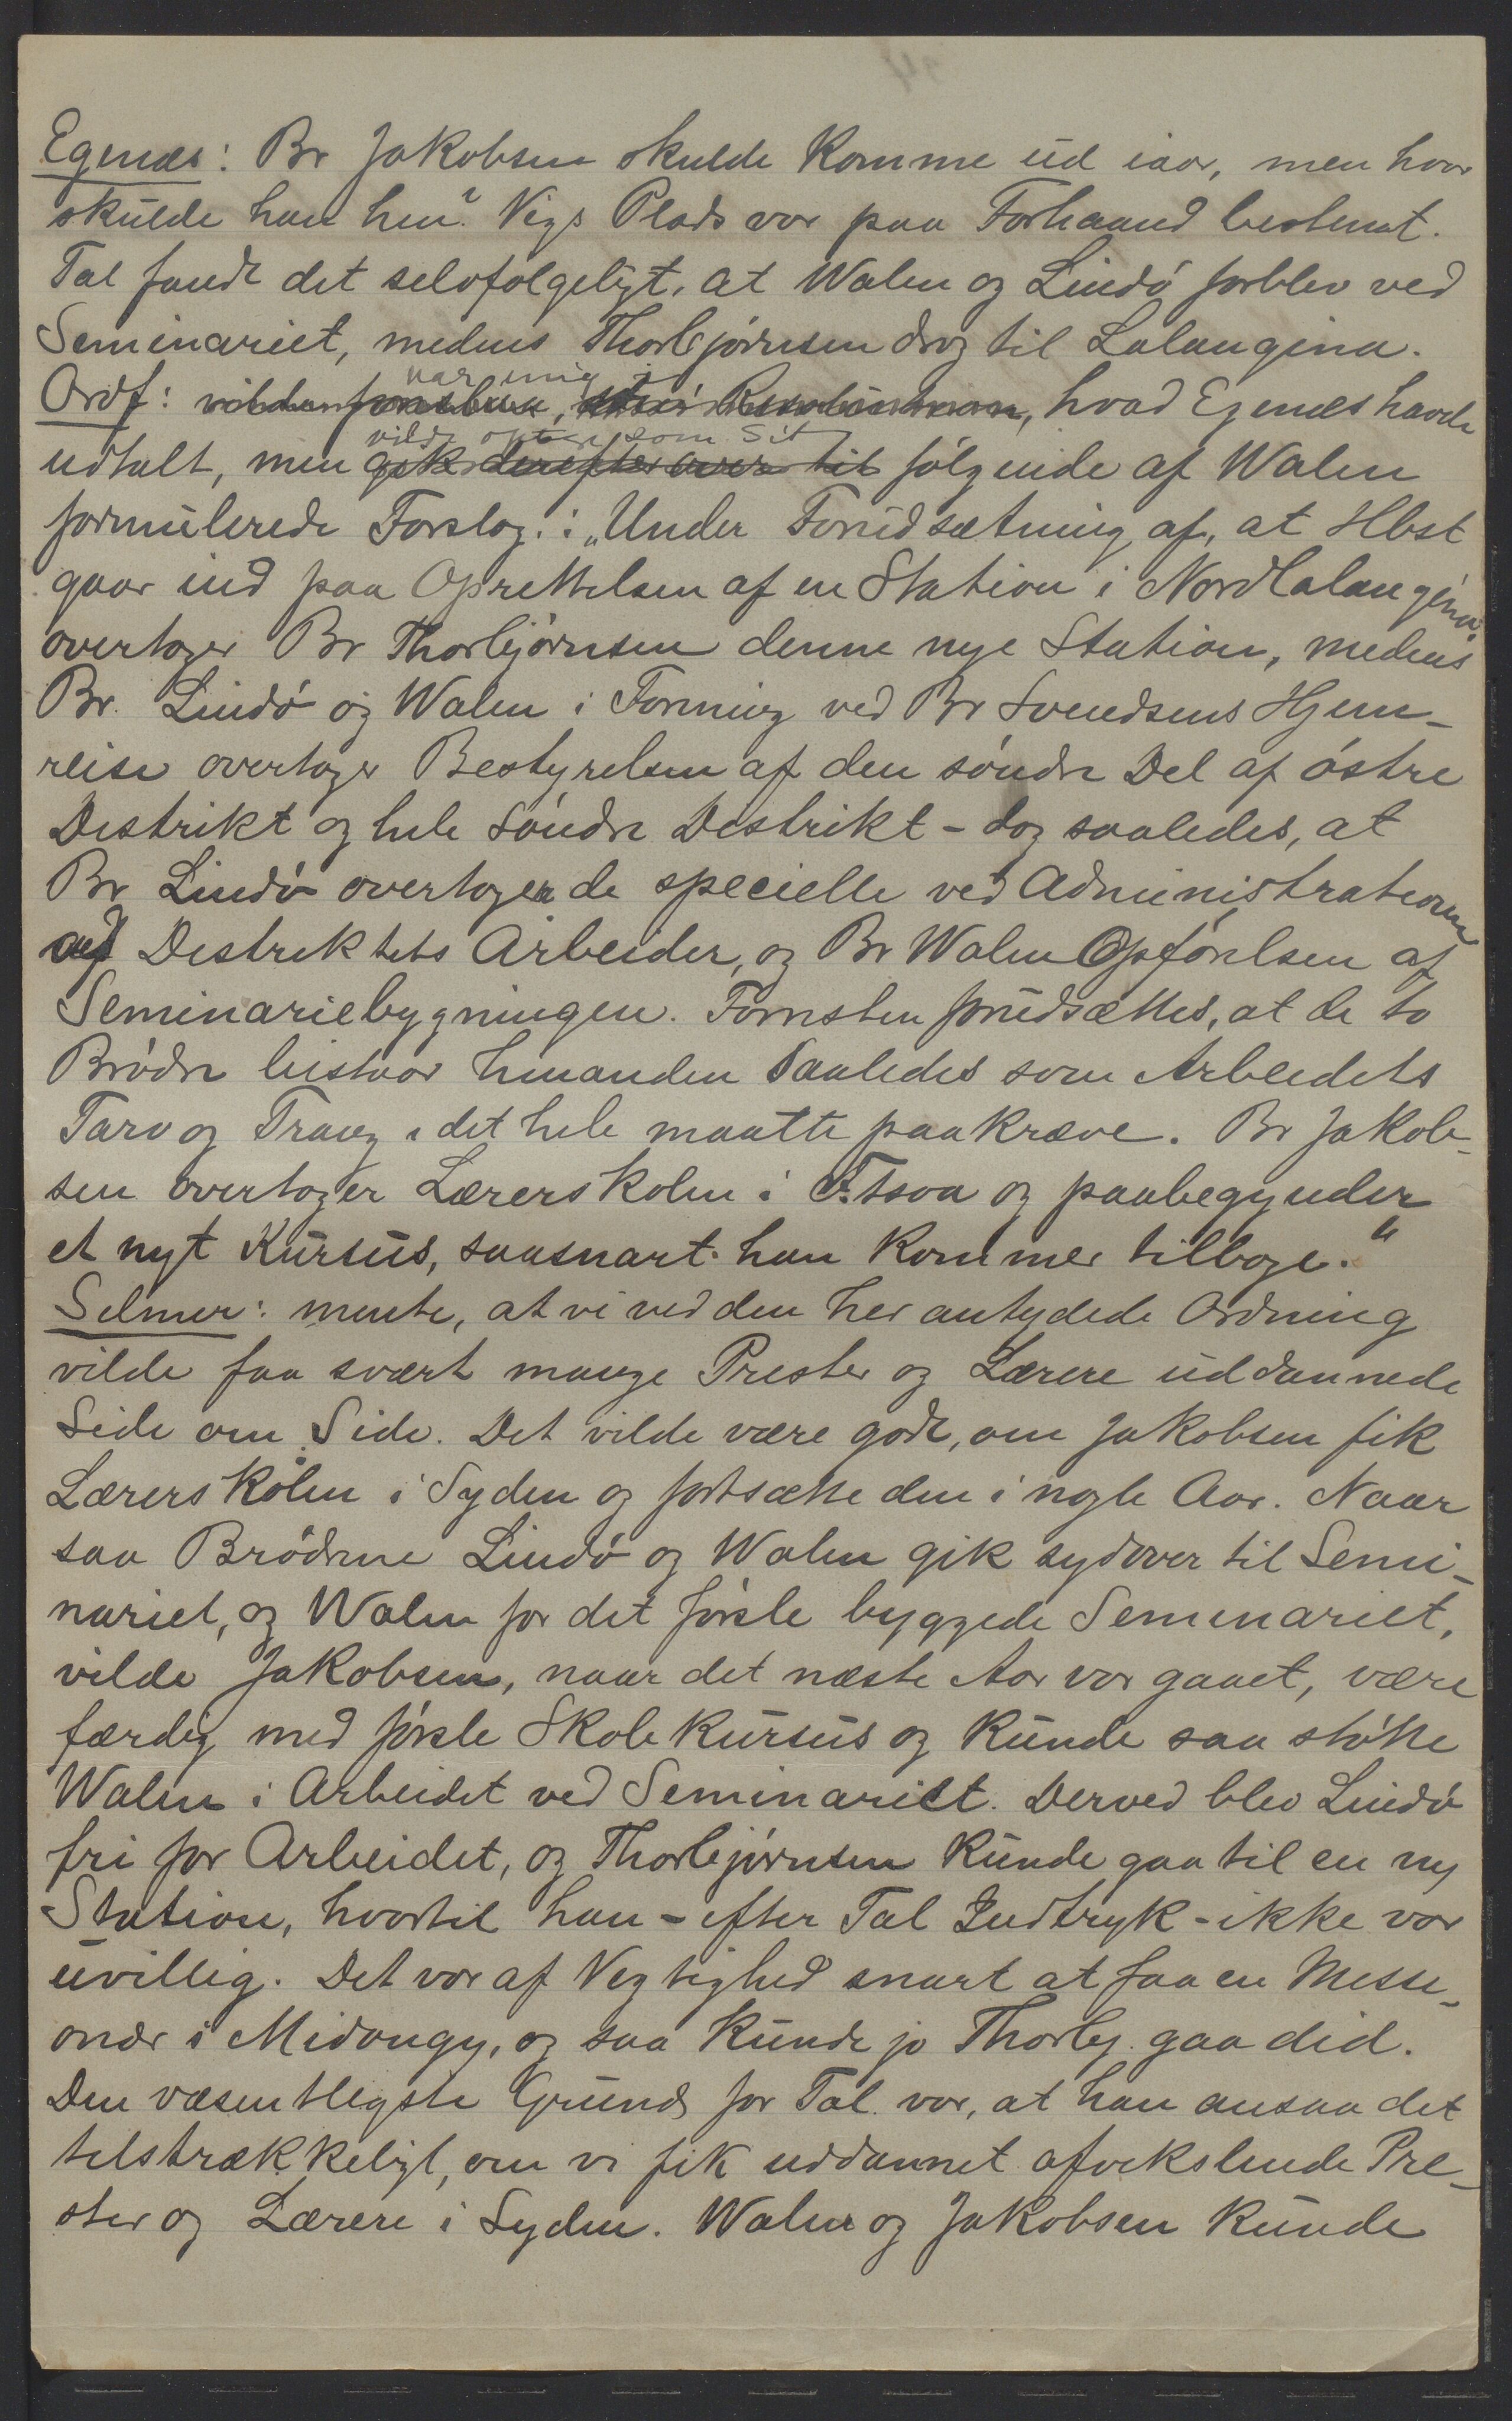 Egenæs: Br Jakobsen skulde komme ud iaar, men hvor
skulde han hen? Vigs Plads var paa Forhaand bestemt.
Tal fandt det selvfølgeligt, at Walen og Lindø forblev ved
Seminariet, medens Thorbjørnsen drog til Lalangina.
var enig i
Ordf: hvad Egenæs havde
vilde optage som sit
udtalt, men gik derefter over til følgende af Walen
formulerede Forslag: „Under Forudsætning af, at Hbst
gaar ind paa Oprettelsen af en Station i Nordlalangina,
overtager Br Thorbjørnsen denne nye Station, medens
Br. Lindø og Walen i Forening ved Br Svendsens Hjem-
reise overtager Bestyrelsen af den søndre Del af østre
Distrikt og hele Søndre Distrikt - dog saaledes, at
Br Lindø overtager de specielle ved Administrationen
af Distriktets Arbeider, og Br Walen Opførelsen af
Seminariebygningen. Fornsten forudsættes, at de to
Brødre bistaar hinanden saaledes som Arbeidets
Tarv og Trang i det hele maatte paakræve. Br Jakob-
sen overtager Lærerskolen i F.tsoa og paabegynder
et nyt Kursus, saasnart han kommer tilbage."
Selmer: mente, at vi ved den her antydede Ordning
vilde faa svært mange Prester og Lærere uddannede
Side om Side. Det vilde være godt, om Jakobsen fik
Lærerskolen i Syden og fortsætte den i nogle Aar. Naar
saa Brødrene Lindø og Walen gik sydover til Semi-
nariet, og Walen for det første byggede Seminariet,
vilde Jakobsen, naar det næste Aar var gaaet, være
færdig med første Skolekursus og kunde saa støtte
Walen i Arbeidet ved Seminariet. Derved blev Lindø
fri for Arbeidet, og Thorbjørnsen kunde gaa til en ny
Station, hvortil han - efter Tal Indtryk - ikke var
uvillig. Det var af Vigtighed snart at faa en Missi-
onær i Midongy, og saa kunde jo Thorbj. gaa did.
Den væsentligste Grund for Tal. var, at han ansaa det
tilstrækkeligt, om vi fik uddannet afvekslende Pre-
ster og Lærere i Syden. Walen og Jakobsen kunde